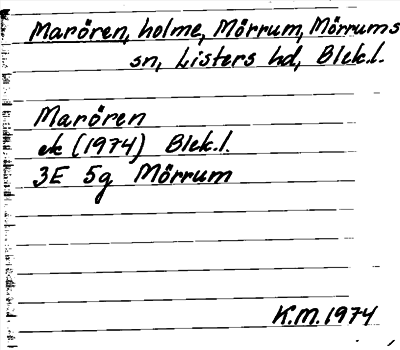 Marören, holme, Mörrum, Mörrums
sn, Listers hd, Blek.l.
Marören
ek (1974) Blek.l.
3E 5g Mörrum
K.M. 1974